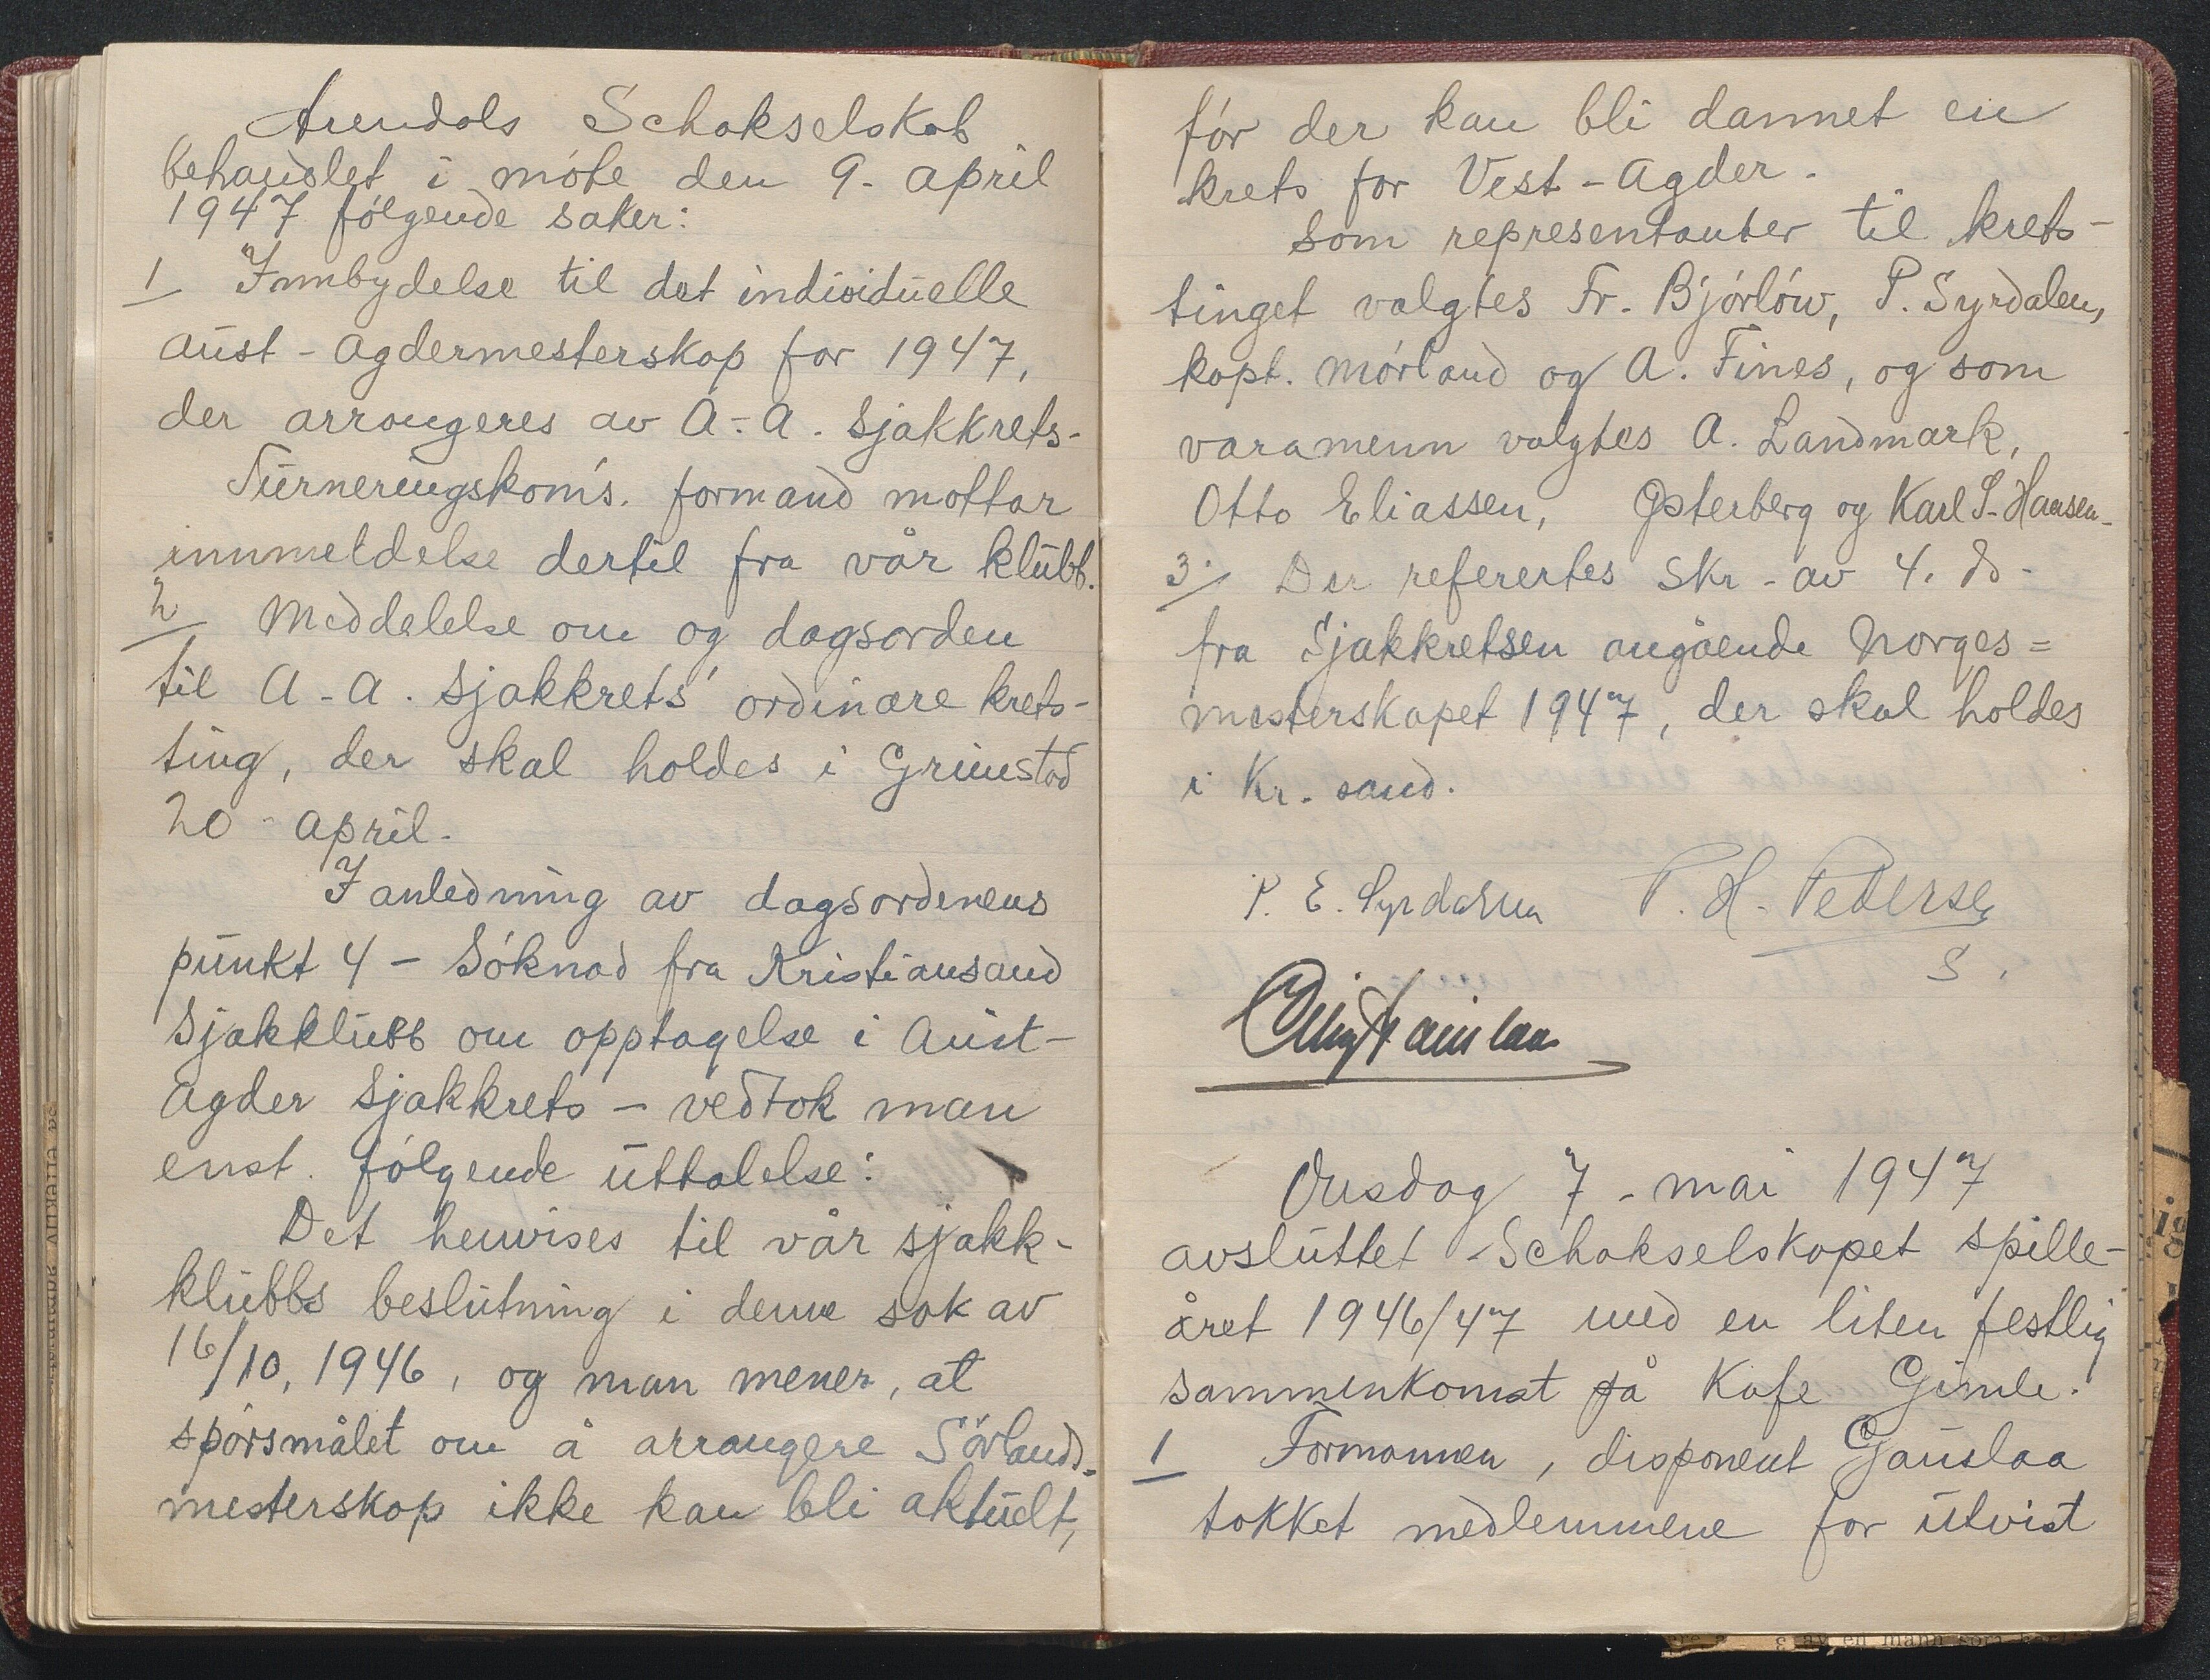 Arendals Schakselskab
behandlet i møte den 9. april
1947 følgende saker:
1 Innbydelse til det individuelle
Aust-Agdermesterskap for 1947,
der arrangeres av A.-A. Sjakkrets.
Turneringskom's. formand mottar
innmeldelse dertil fra vår klubb.
2 Meddelelse om og dagsorden
til A-A. Sjakkrets' ordinære krets-
ting, der skal holdes i Grimstad
20 april.
I anledning av dagsordenens
punkt 4 - Søknad fra Kristiansand
Sjakklubb om opptagelse i Aust-
Agder Sjakkrets - vedtok man
enst. følgende uttalelse:
Det henvises til vår sjakk-
klubbs beslutning i denne sak av
16/10, 1946, og man mener, at
spørsmålet om å arrangere Sørlands-
mesterskap ikke kan bli aktuelt,
før der kan bli dannet en
krets for Vest-Agder.
Som representanter til krets-
tinget valgtes Fr. Bjørløw, P. Syrdalen,
kapt. Mørland og A. Fines, og som
varamenn valgtes A. Landmark,
Otto Eliassen, Østerberg og Karl S. Hansen.
3. Der referertes skr. av 4. ds.
fra Sjakkretsen angående Norges=
mesterskapet 1947, der skal holdes
i Kr.sand.
P. E. Syrdalen P. H. Pedersen
S.
Onsdag 7. mai 1947
avsluttet Schakselskapet spille-
året 1946/47 med en liten festlig
sammenkomst på Kafe Gimle.
1 Formannen, disponent Gauslaa
takket medlemmene for utvist